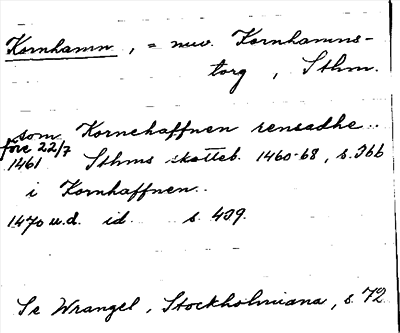 Kornhamn, = nuv. Kornhamns-
torg, Sthm.
som Kornehaffnen rensadhe..
före 22/7
1461 Sthms skatteb. 1460-68, s. 366
i Kornhaffnen..
1470 u.d. id. s. 409.
Se Wrangel, Stockholmiana, s. 72